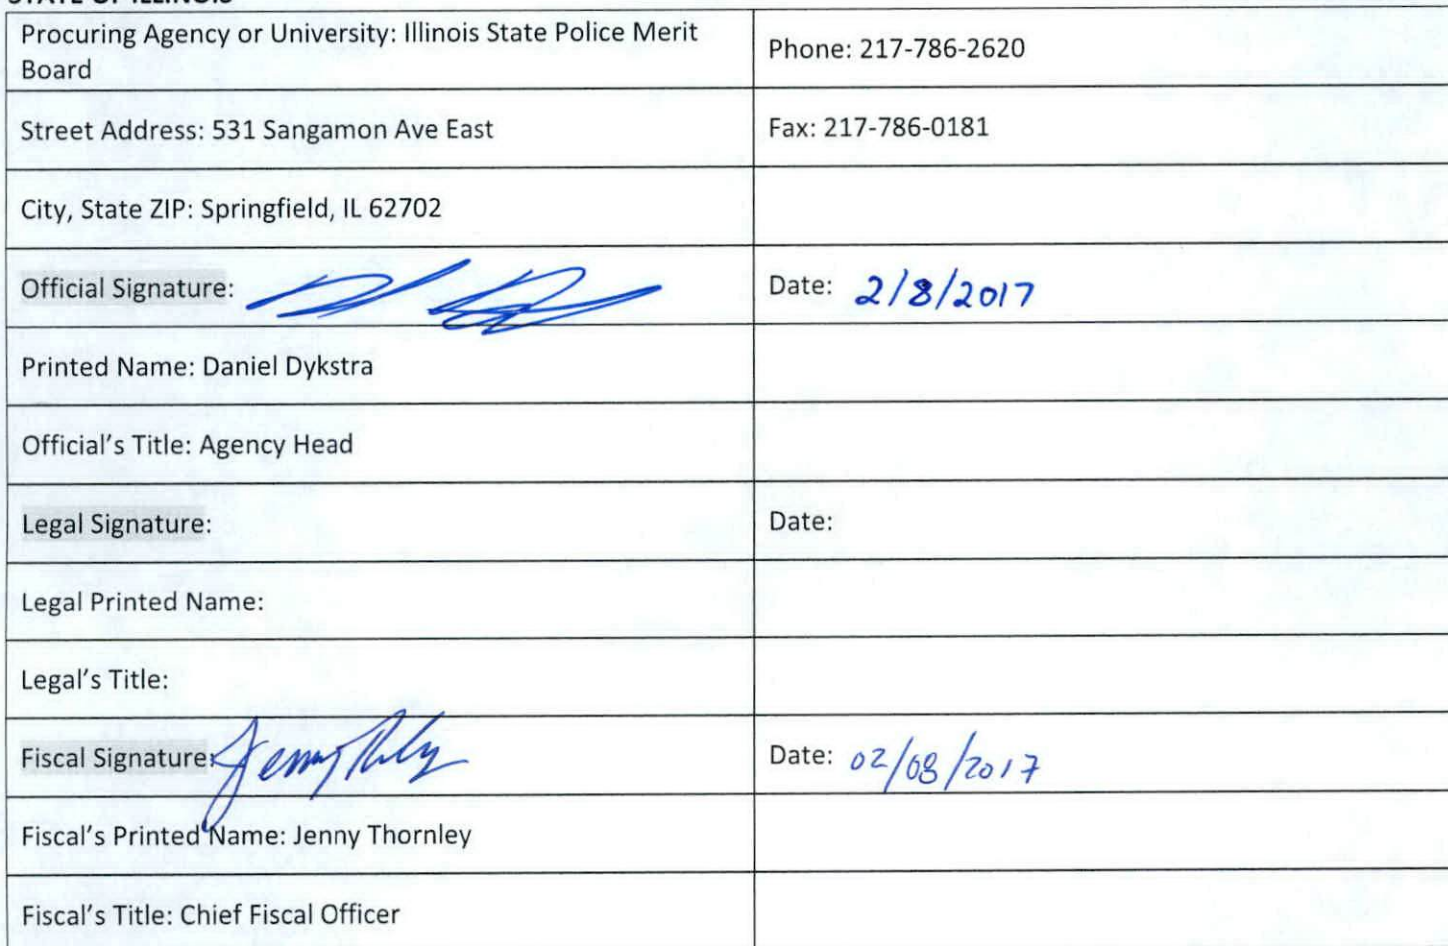 STATE OF ILLINOIS
Procuring Agency or University: Illinois State Police Merit
Board
Phone: 217-786-2620
Street Address: 531 Sangamon Ave East
Fax: 217-786-0181
City, State ZIP: Springfield, IL 62702
Official Signature:
Date: 2/8/2017
Printed Name: Daniel Dykstra
Official's Title: Agency Head
Legal Signature:
Date:
Legal Printed Name:
Legal's Title:
Fiscal Signature: Jenny
Date: 02/08/2017
Fiscal's Printed Name: Jenny Thornley
Fiscal's Title: Chief Fiscal Officer